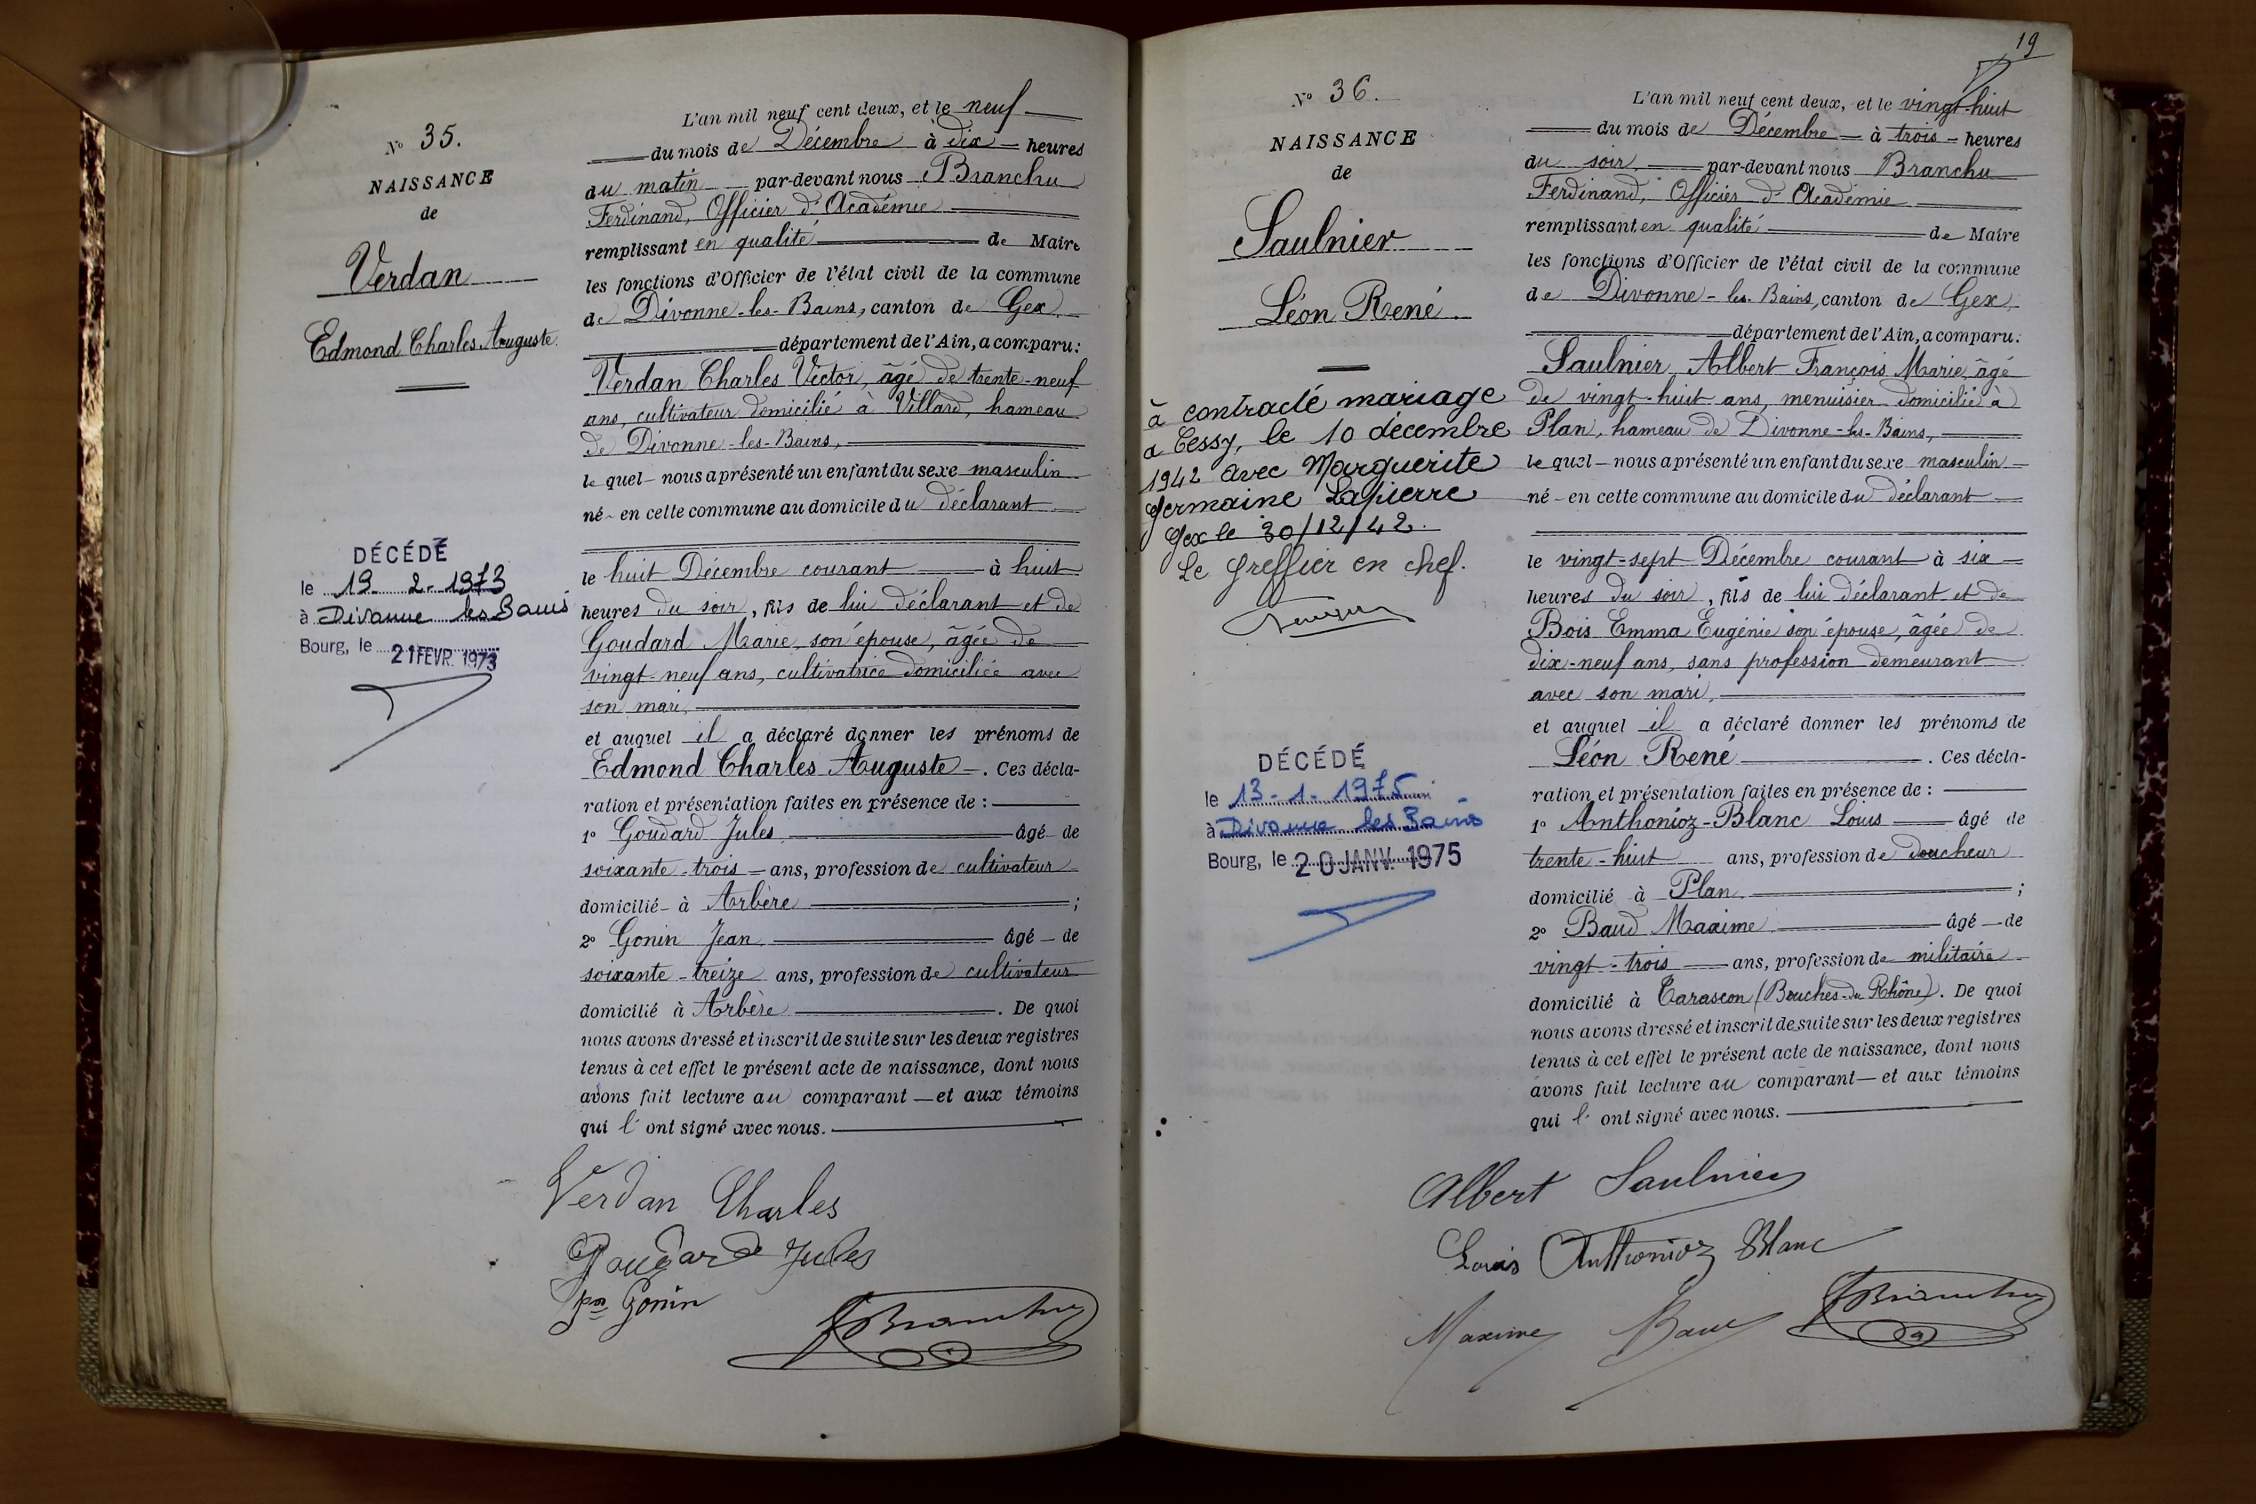 N° 35.
NAISSANCE
de
Verdan
Edmond Charles Auguste.
DÉCÉDÉ
le 19 - 2 - 1973
à Divonne les Bains
Bourg, le 21 FEVR. 1973
L'an mil neuf cent deux, et le neuf
du mois de Décembre à dix heures
du matin par-devant nous Branchu
Ferdinand, Officier d'Académie
remplissant en qualité de Maire
les fonctions d'Officier de l'état civil de la commune
de Divonne-les-Bains, canton de Gex
département de l'Ain, a comparu:
Verdan Charles Victor, âgé de trente-neuf
ans, cultivateur domicilié à Villard, hameau
de Divonne-les-Bains,
le quel nous a présenté un enfant du sexe masculin
né en cette commune au domicile du déclarant
le huit Décembre courant à huit
heures du soir, fils de lui déclarant et de
Goudard Marie, son épouse, âgée de
vingt-neuf ans, cultivatrice domiciliée avec
son mari,
et auquel il a déclaré donner les prénoms de
Edmond Charles Auguste. Ces décla-
ration et présentation faites en présence de :
1° Goudard Jules âgé de
soixante-trois ans, profession de cultivateur
domicilié à Arbère ;
2° Gonin Jean âgé de
soixante-treize ans, profession de cultivateur
domicilié à Arbère. De quoi
nous avons dressé et inscrit de suite sur les deux registres
tenus à cet effet le présent acte de naissance, dont nous
avons fait lecture au comparant et aux témoins
qui l' ont signé avec nous.
Verdan Charles
Goudard Jules
Jn Gonin
Branchu
19
N° 36.
NAISSANCE
de
Saulnier
Léon René
à contracté mariage
a Cessy, le 10 décembre
1942 avec Marguerite
Germaine Lapierre
Gex le 30/12/42.
Le Greffier en chef.
DÉCÉDÉ
le 13 - 1 - 1975
à Divonne les Bains
Bourg, le 20 JANV. 1975
L'an mil neuf cent deux, et le vingt-huit
du mois de Décembre à trois heures
du soir par-devant nous Branchu
Ferdinand, Officier d'Académie
remplissant en qualité de Maire
les fonctions d'Officier de l'état civil de la commune
de Divonne-les-Bains, canton de Gex,
département de l'Ain, a comparu:
Saulnier, Albert François Marie, âgé
de vingt-huit ans, menuisier domicilié à
Plan, hameau de Divonne-les-Bains,
le quel nous a présenté un enfant du sexe masculin
né en cette commune au domicile du déclarant
le vingt-sept Décembre courant à six
heures du soir, fils de lui déclarant et de
Bois Emma Eugénie son épouse, âgée de
dix-neuf ans, sans profession demeurant
avec son mari,
et auquel il a déclaré donner les prénoms de
Léon René. Ces décla-
ration et présentation faites en présence de :
1° Anthonioz-Blanc Louis âgé de
trente-huit ans, profession de doucheur
domicilié à Plan ;
2° Baud Maxime âgé de
vingt-trois ans, profession de militaire
domicilié à Tarascon (Bouches-du-Rhône). De quoi
nous avons dressé et inscrit de suite sur les deux registres
tenus à cet effet le présent acte de naissance, dont nous
avons fait lecture au comparant et aux témoins
qui l' ont signé avec nous.
Albert Saulnier
Louis Anthonioz Blanc
Maxime Baud
Branchu